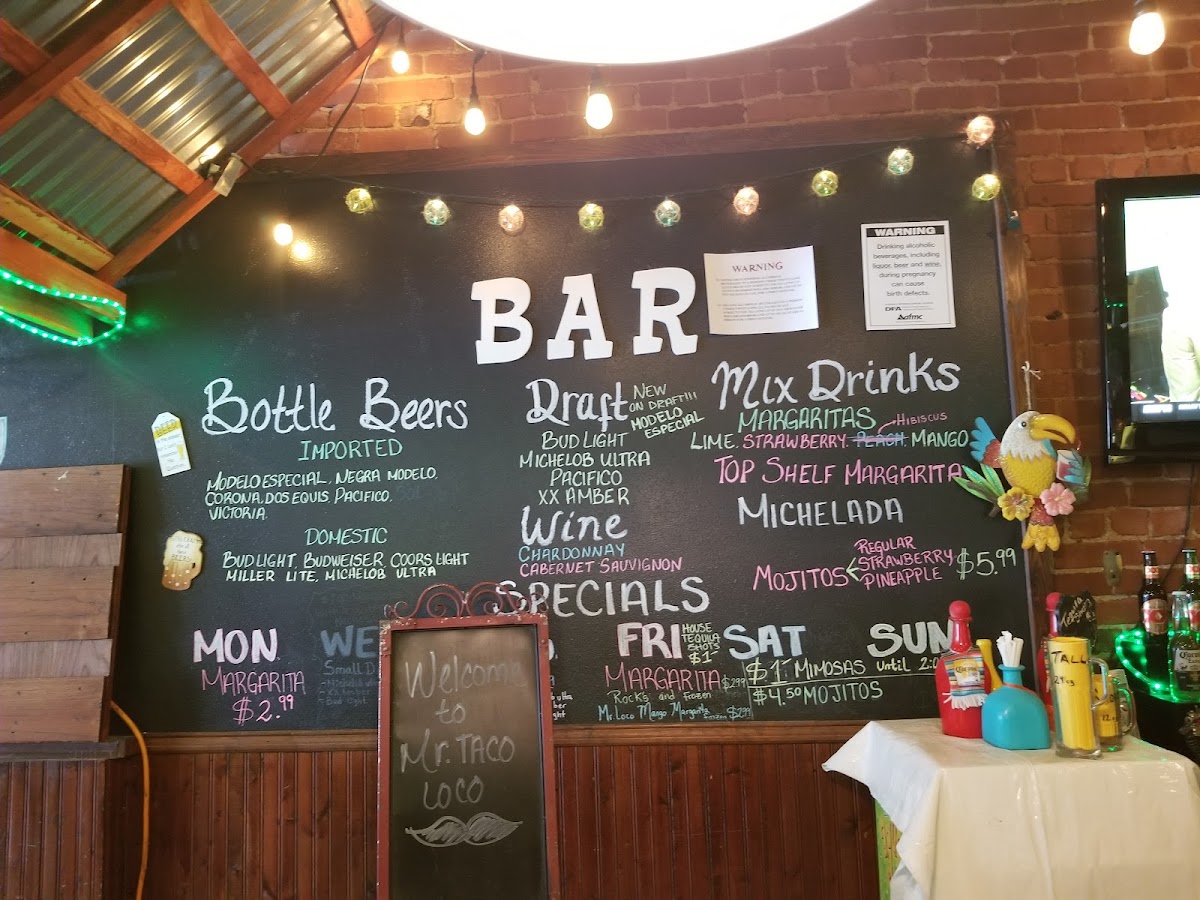 BAR
WARNING
WARNING
Drinking alcoholic
beverages, including
liquor, beer and wine,
during pregnancy
can cause
birth defects.
DFA
afmc
Bottle Beers
IMPORTED
MODELO ESPECIAL, NEGRA MODELO,
CORONA, DOS EQUIS, PACIFICO,
VICTORIA.
DOMESTIC
BUD LIGHT, BUDWEISER, COORS LIGHT
MILLER LITE, MICHELOB ULTRA
Draft
NEW
ON DRAFT!!!
MODELO
ESPECIAL
BUD LIGHT
MICHELOB ULTRA
PACIFICO
XX AMBER
Wine
CHARDONNAY
CABERNET SAUVIGNON
Mix Drinks
MARGARITAS
HIBISCUS
LIME. STRAWBERRY. PEACH. MANGO
TOP SHELF MARGARITA
MICHELADA
MOJITOS
REGULAR
STRAWBERRY
PINEAPPLE
$5.99
SPECIALS
MON
MARGARITA
$2.99
WE
Small D
FRI
HOUSE
TEQUILA
SHOTS
$1
MARGARITA $2.99
Rocks and Frozen
Mr. Loco Mango Margarita Frozen $7.99
SAT
SUN
$1 MIMOSAS until 2:0
$4.50 MOJITOS
Welcome
to
Mr. TACO
LOCO
TALL
24oz
12